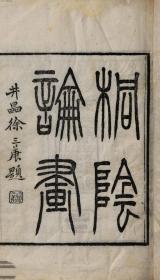 桐陰
論畫
井罍徐三庚題